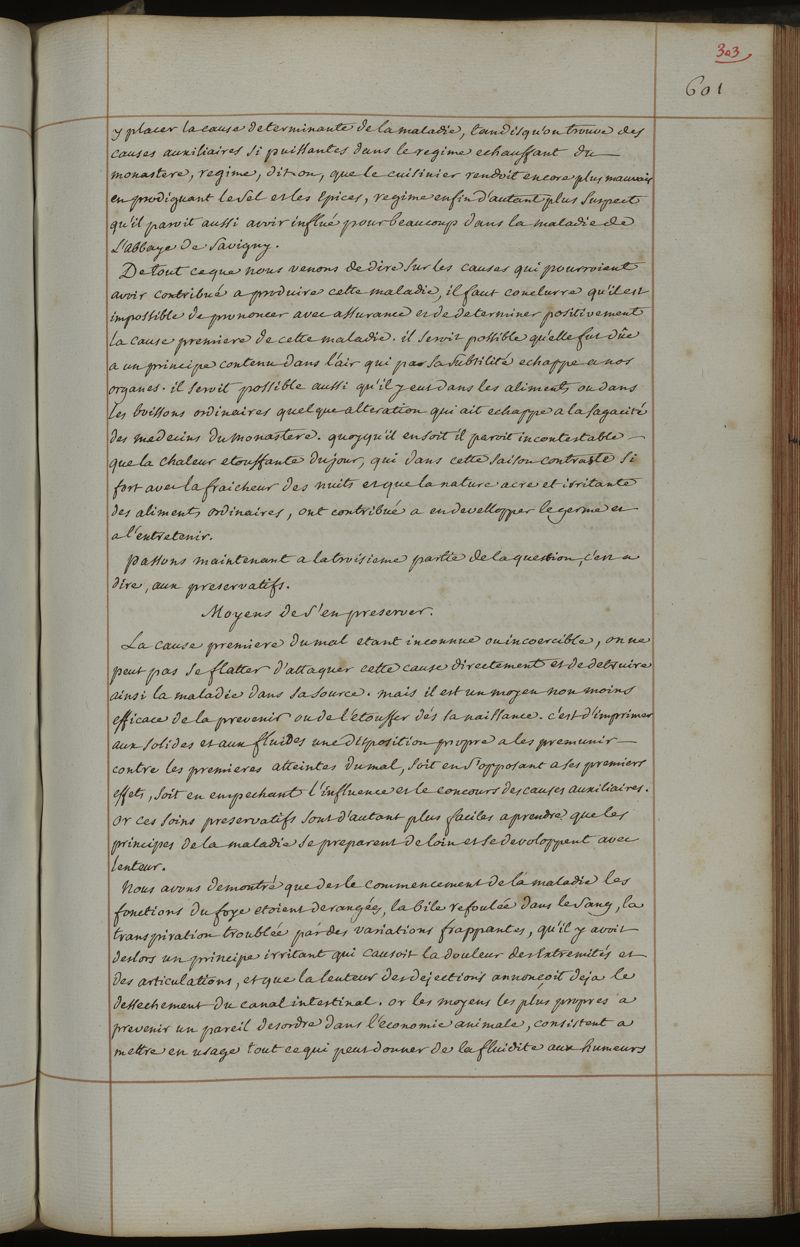 303
601
y placer la cause determinante de la maladie, tandisqu'on trouve des
causes auxiliaires si puissantes dans le regime echauffant du
monastere, regime, dit-on, que le cuisinier rendoit encore plus mauvais
en prodiguant le sel et les Epices, regime enfin d'autant plus suspect
qu'il paroit aussi avoir influé pour beaucoup dans la maladie de
L'abbaye de Savigny.
De tout ce que nous venons de dire sur les causes qui pourroient
avoir contribué a produire cette maladie, il faut conclurre qu'il est
impossible de prononcer avec assurance et de determiner positivement
la cause premiere de cette maladie. il seroit possible qu'elle fut dûe
a un principe contenu dans l'air qui par sa subtilité echappe a nos
organes. il seroit possible aussi qu'il y eut dans les aliments ou dans
les boissons ordinaires quelque alteration qui ait echappé a la sagacité
des medecins du monastere. quoyqu'il en soit il paroit incontestable
que la chaleur etouffante du jour, qui dans cette saison contraste si
fort avec la fraicheur des nuits et que la nature acre et irritante
des aliments ordinaires, ont contribué a en devellopper le germe et
a l'entretenir.
passons maintenant a la troisieme partie de la question, c'est a
dire, aux preservatifs.
Moyens de s'en preserver.
La cause premiere du mal etant inconnue ou incoercible, on ne
peut pas se flatter d'attaquer cette cause directement et de detruire
ainsi la maladie dans sa source. mais il est un moyen non moins
efficace de la prevenir ou de l'étouffer dés sa naissance. c'est d'imprimer
aux solides et aux fluides une disposition propre a les premunir
contre les premieres atteintes du mal, soit en s'opposant a ses premiers
effets, soit en empechant l'influence et le concours des causes auxiliaires.
Or ces soins preservatifs sont d'autant plus faciles a prendre que les
principes de la maladie se preparent de loin et se devoloppent avec
lenteur.
Nous avons demontré que des le commencement de la maladie les
fonctions du foye etoient derangées, la bile refoulée dans le sang, la
transpiration troublée par des variations frappantes, qu'il y avoit
deslors un principe irritant qui causoit la douleur des Extremités et
des articulations, et que la lenteur des dejections annonçoit deja le
dessechement du canal intestinal. or les moyens les plus propres a
prevenir un pareil desordre dans l'économie animale, consistent a
mettre en usage tout ce qui peut donner de la fluidité aux humeurs